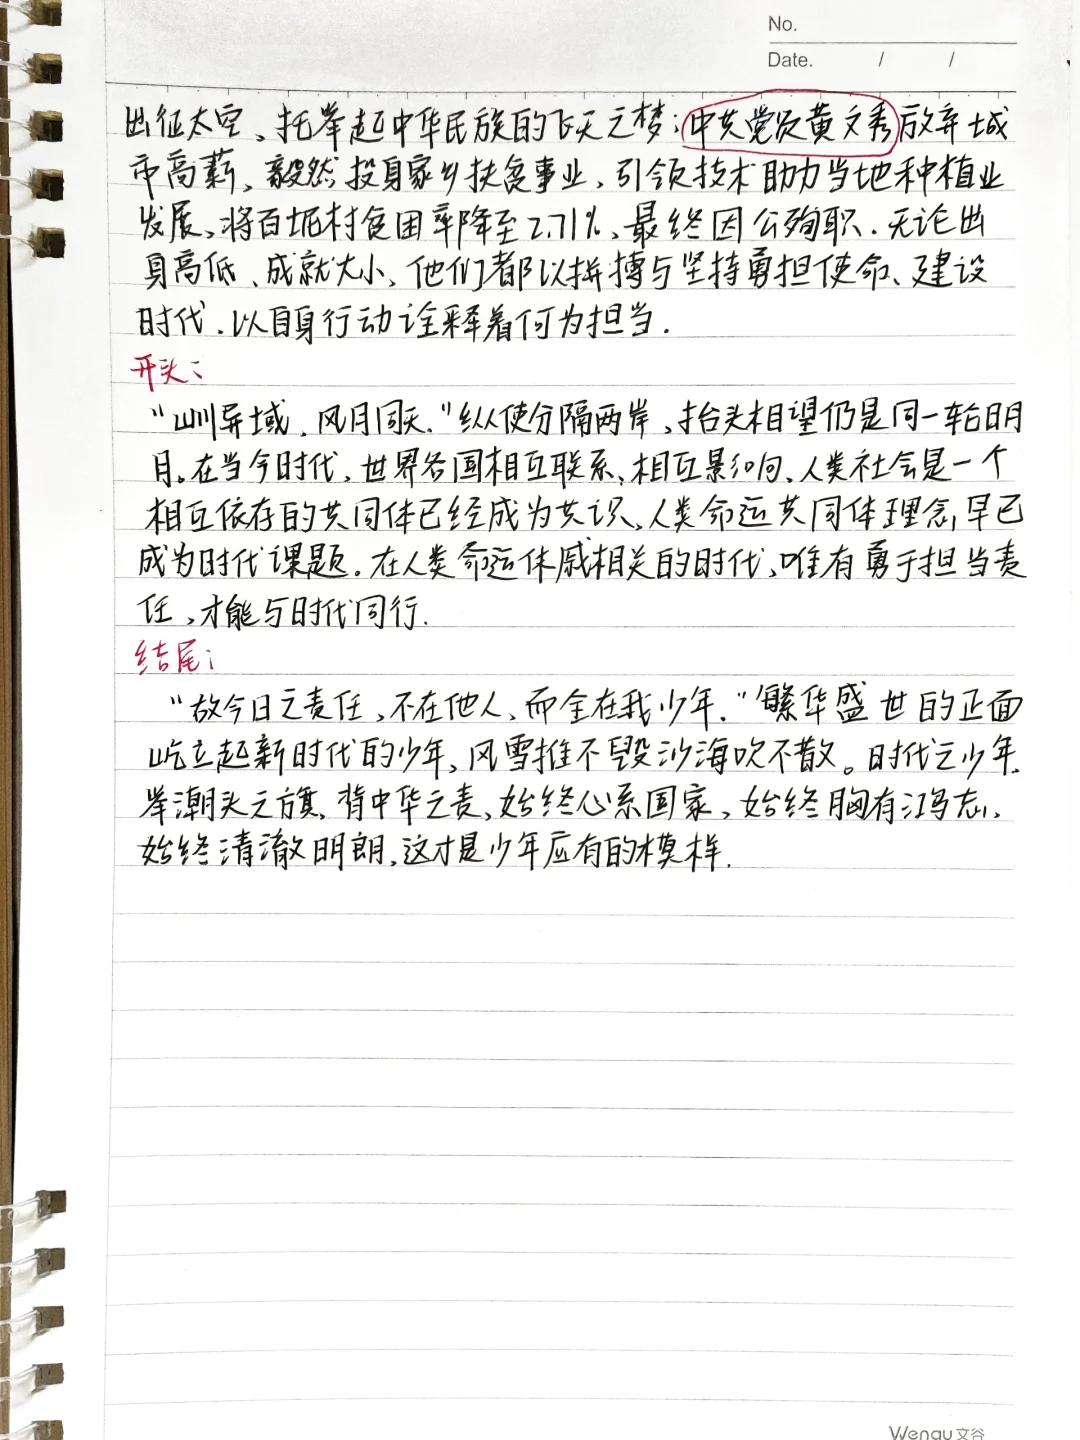 No.
Date. / /
出征太空、托举起中华民族的飞天之梦；中共党员黄文秀放弃城
市高薪、毅然投身家乡扶贫事业、引领技术助力当地种植业
发展、将百坭村贫困率降至2.71%、最终因公殉职.无论出
身高低、成就大小、他们都以拼搏与坚持勇担使命、建设
时代.以自身行动诠释着何为担当.
开头：
"山川异域.风月同天."纵使分隔两岸,抬头相望仍是同一轮明月
月。在当今时代,世界各国相互联系、相互影响、人类社会是一个
相互依存的共同体已经成为共识、人类命运共同体理念,早已
成为时代课题.在人类命运休戚相关的时代,唯有勇于担当责
任,才能与时代同行.
结尾：
"故今日之责任,不在他人、而全在我少年."繁华盛世的正面
屹立起新时代的少年,风雪摧不毁沙海吹不散。时代之少年.
举潮头之旗,背中华之责,始终心系国家、始终胸有鸿志、
始终清澈明朗,这才是少年应有的模样.
Wengu文谷